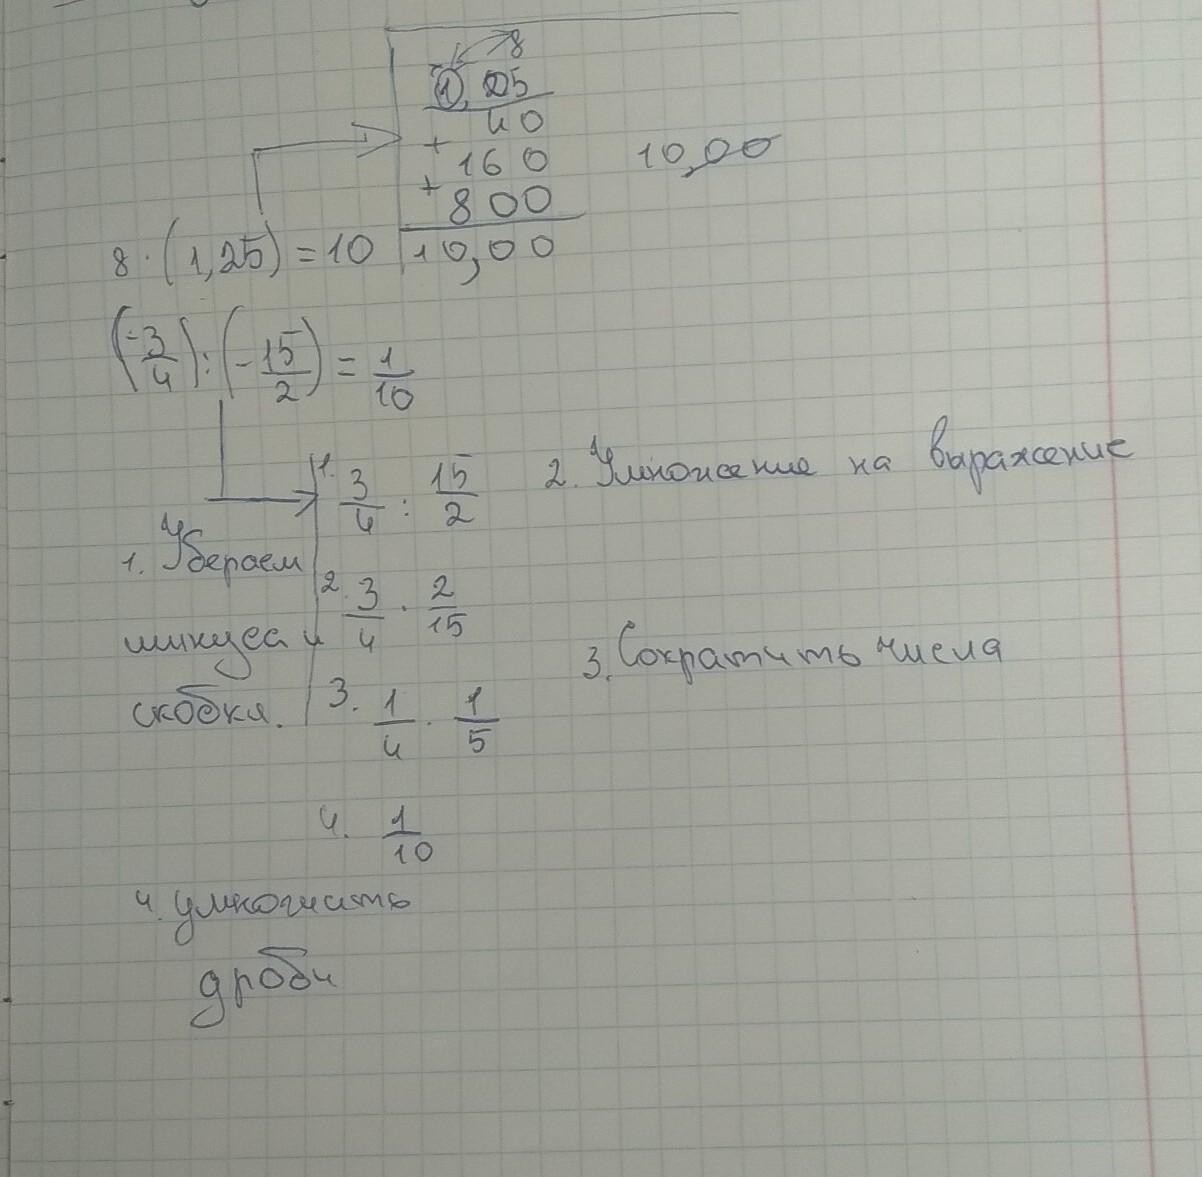 8
1,25
40
+
160
+
800
10,00
10,00
8 · (1,25) = 10
(-3/4) : (-15/2) = 1/10
1. 3/4 : 15/2
2. Умножение на выражение
1. Убераем
2. 3/4 · 2/15
минуса и
3. Сократить числа
скобки.
3. 1/4 · 1/5
4. 1/10
4. умножить
дроби